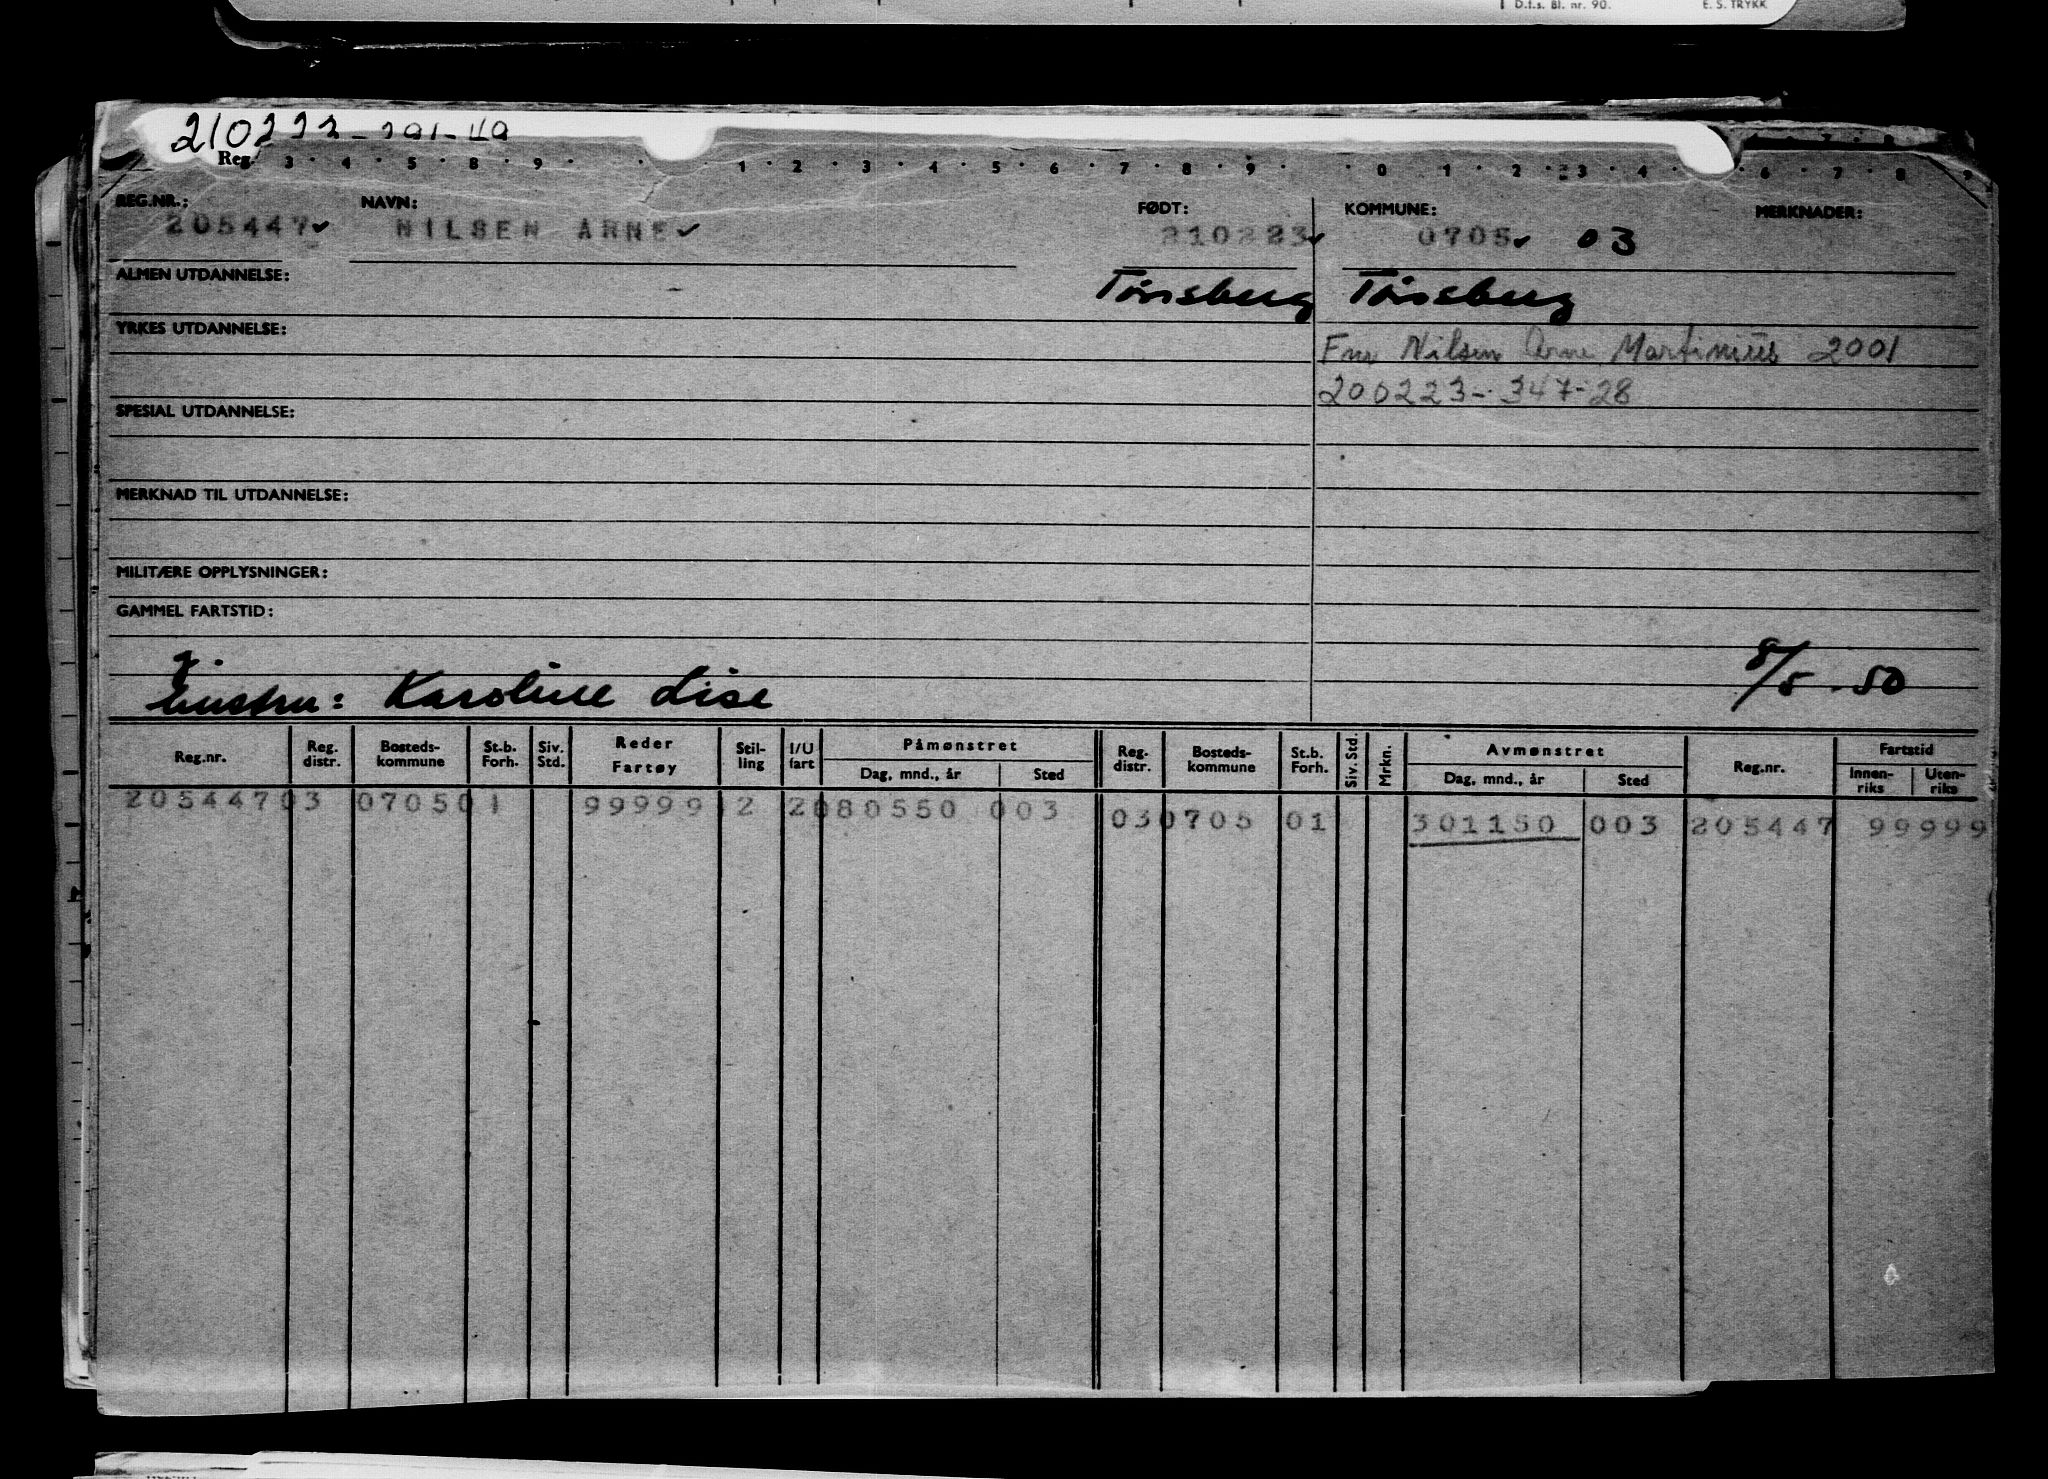 D.f.s. Bl. nr. 90. E. S. TRYKK
Reg. 3 4 5 8 9 1 2 3 4 5 6 7 8 9 0 1 2 3 4 6 7 8 9
REG.NR.: NAVN: FØDT: KOMMUNE: MERKNADER:
205447 NILSEN ARNE 210223 0705 03
ALMEN UTDANNELSE: Tønsberg Tønsberg
YRKES UTDANNELSE: Nilsen Arne Martinius 2001
200223-347-28
SPESIAL UTDANNELSE:
MERKNAD TIL UTDANNELSE:
MILITÆRE OPPLYSNINGER:
GAMMEL FARTSTID:
hustru: Karoline Lise 8/5-50
Reg.nr. Reg. distr. Bosteds-kommune St.b. Forh. Siv. Std. Reder Fartøy Stil-ling I/U fart Påmønstret Dag, mnd., år Sted Reg. distr. Bosteds-kommune St.b. Forh. Siv. Std. Mrkn. Avmønstret Dag, mnd., år Sted Reg.nr. Fartstid Innen-riks Uten-riks
205447 03 0705 01 99999 2 2 080550 003 03 0705 01 301150 003 205447 99999